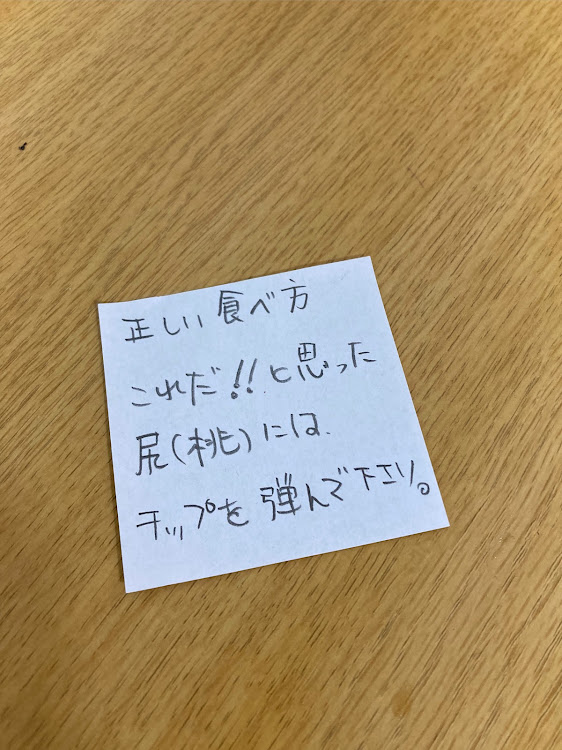 正しい食べ方
これだ!!と思った
尻(桃)には
チップを弾んで下エリ。